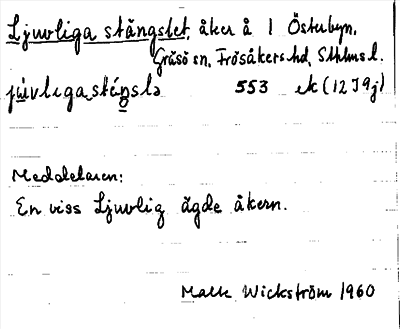 Ljuvliga stängslet, åker å 1 Österbyn,
Gräsö sn, Frösåkers hd, Sthlms l.
553 ek (12 I 9 j)
Meddelaren:
En viss Ljuvlig ägde åkern.
Malk Wickström 1960